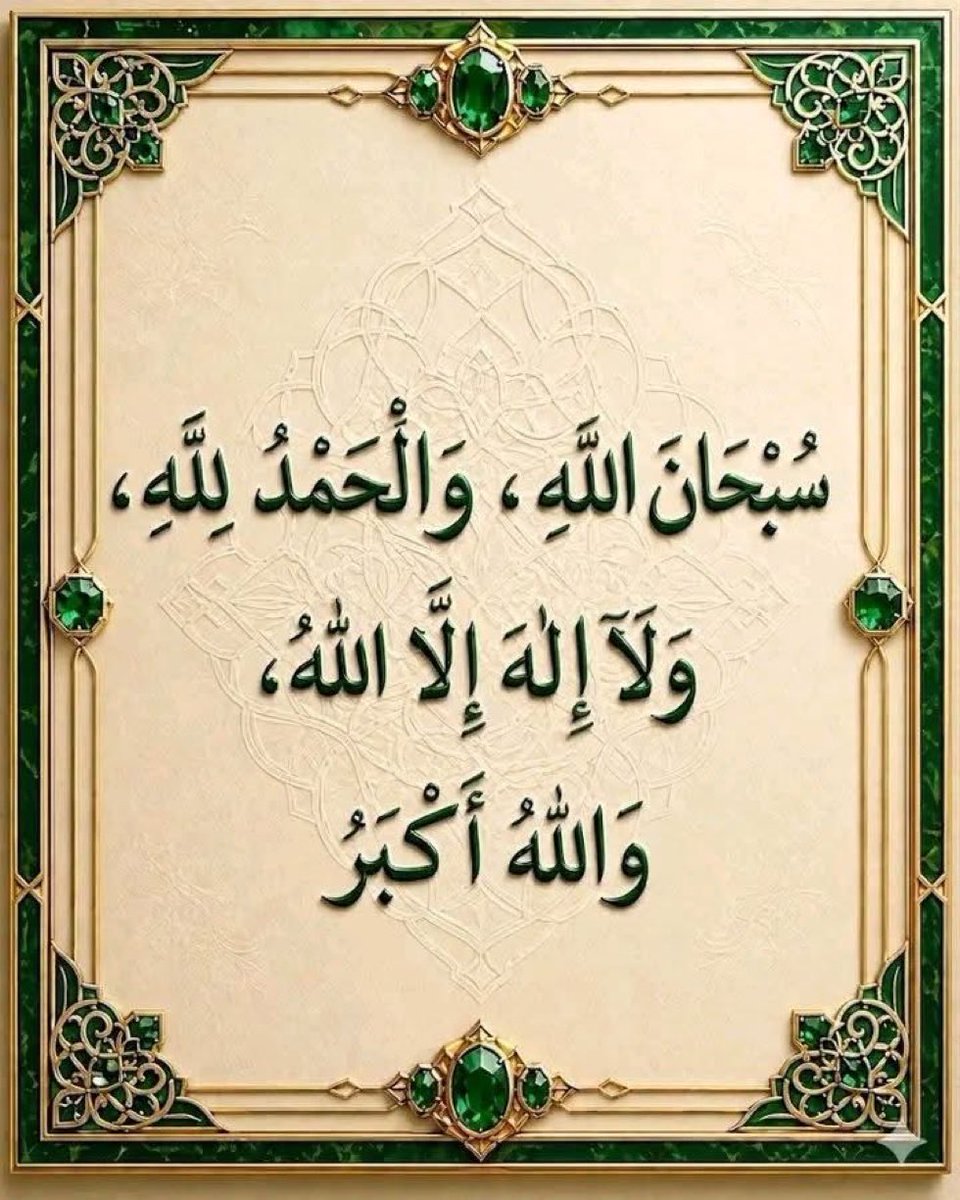 سُبْحَانَ اللَّهِ، وَالْحَمْدُ لِلَّهِ،
وَلَآ إِلٰهَ إِلَّا اللّٰهُ،
وَاللّٰهُ أَكْبَرُ